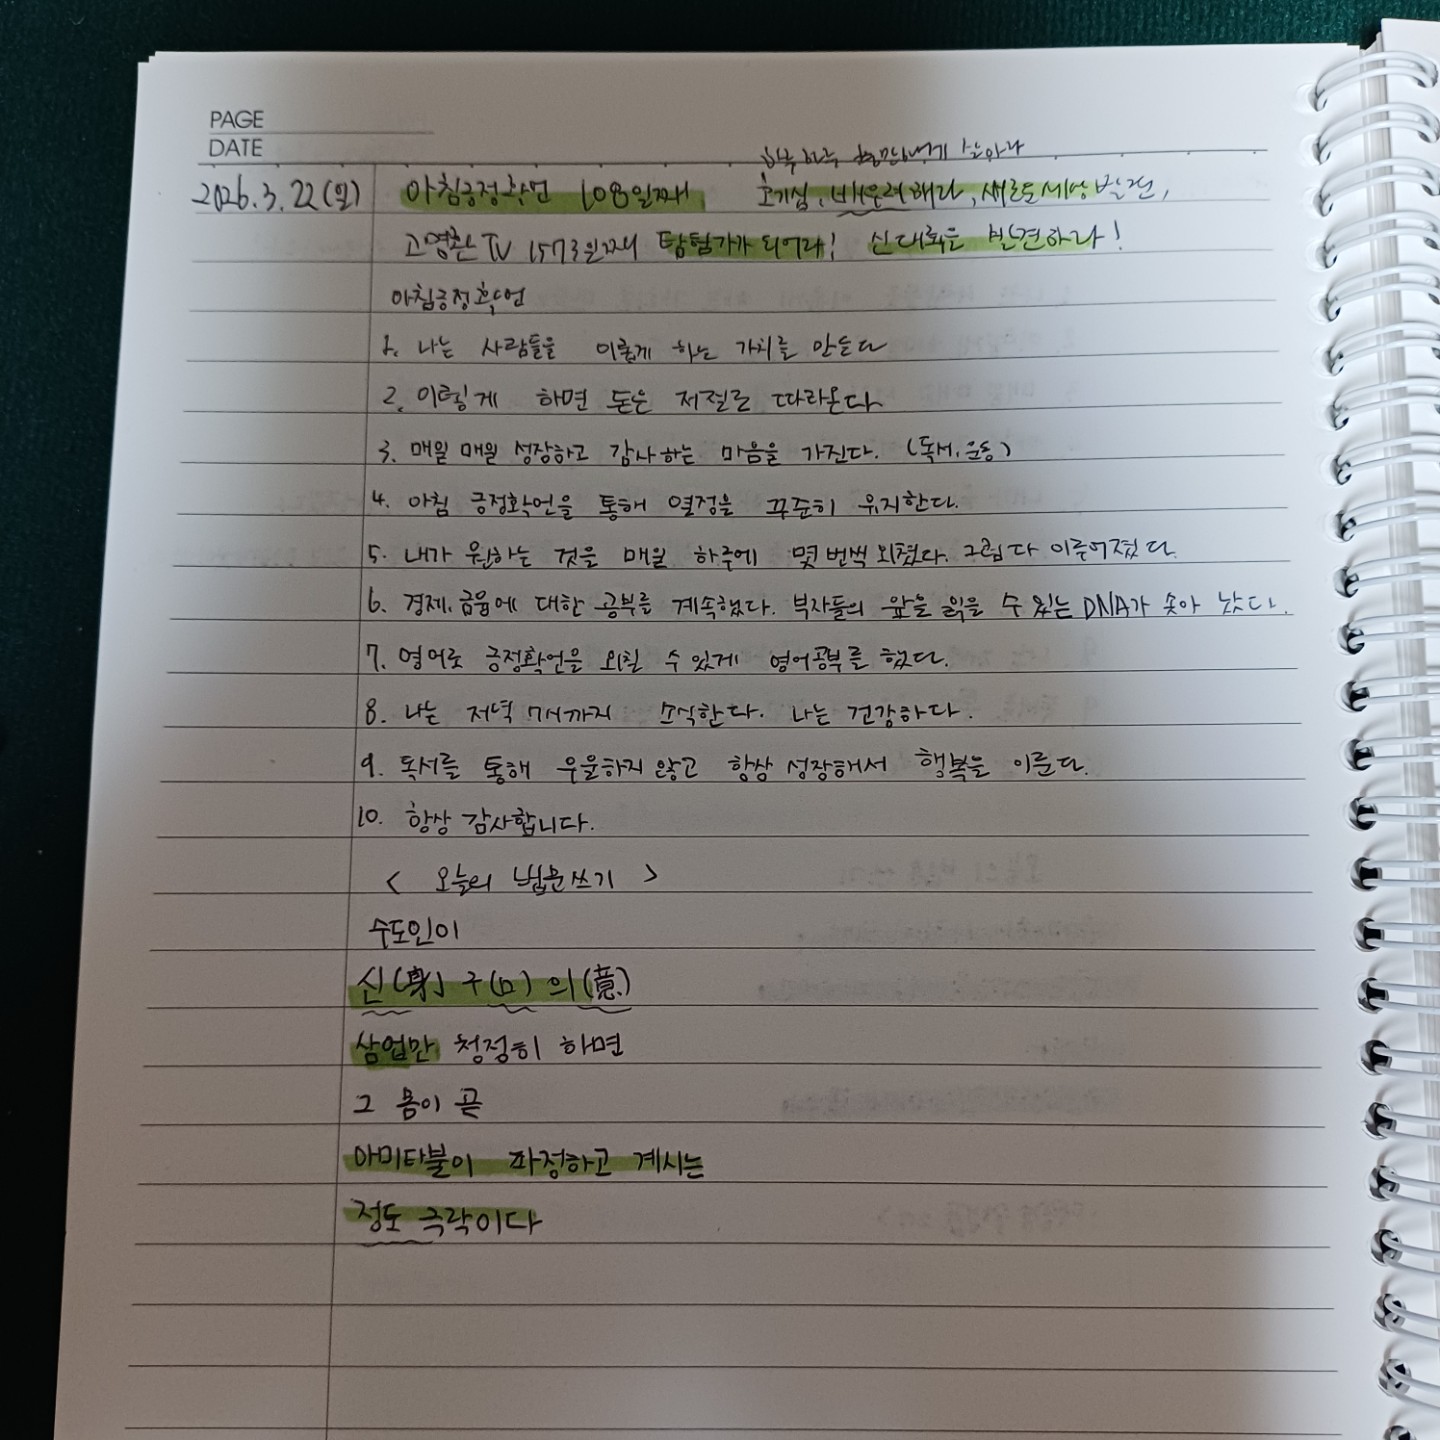 PAGE
DATE
하루 하루 충만하게 살아라
2026.3.22(일) 아침긍정확언 108일째 호기심, 배우려해라, 새로운세상 발견,
고영환TV 1573일째 탐험가가 되어라! 신대륙을 발견하라!
아침긍정확언
1. 나는 사람들을 이롭게 하는 가치를 만든다
2. 이렇게 하면 돈은 저절로 따라온다
3. 매일 매일 성장하고 감사하는 마음을 가진다. (독서, 운동)
4. 아침 긍정확언을 통해 열정을 꾸준히 유지한다.
5. 내가 원하는 것을 매일 하루에 몇 번씩 외쳤다. 그럼 다 이루어졌다.
6. 경제, 금융에 대한 공부를 계속했다. 부자들의 앞을 읽을 수 있는 DNA가 솟아 났다.
7. 영어로 긍정확언을 외칠 수 있게 영어공부를 했다.
8. 나는 저녁 7시까지 소식한다. 나는 건강하다.
9. 독서를 통해 우울하지 않고 항상 성장해서 행복을 이룬다.
10. 항상 감사합니다.
< 오늘의 법문쓰기 >
수도인이
신(身) 구(口) 의(意)
삼업만 청정히 하면
그 몸이 곧
아미타불이 좌정하고 계시는
정토 극락이다